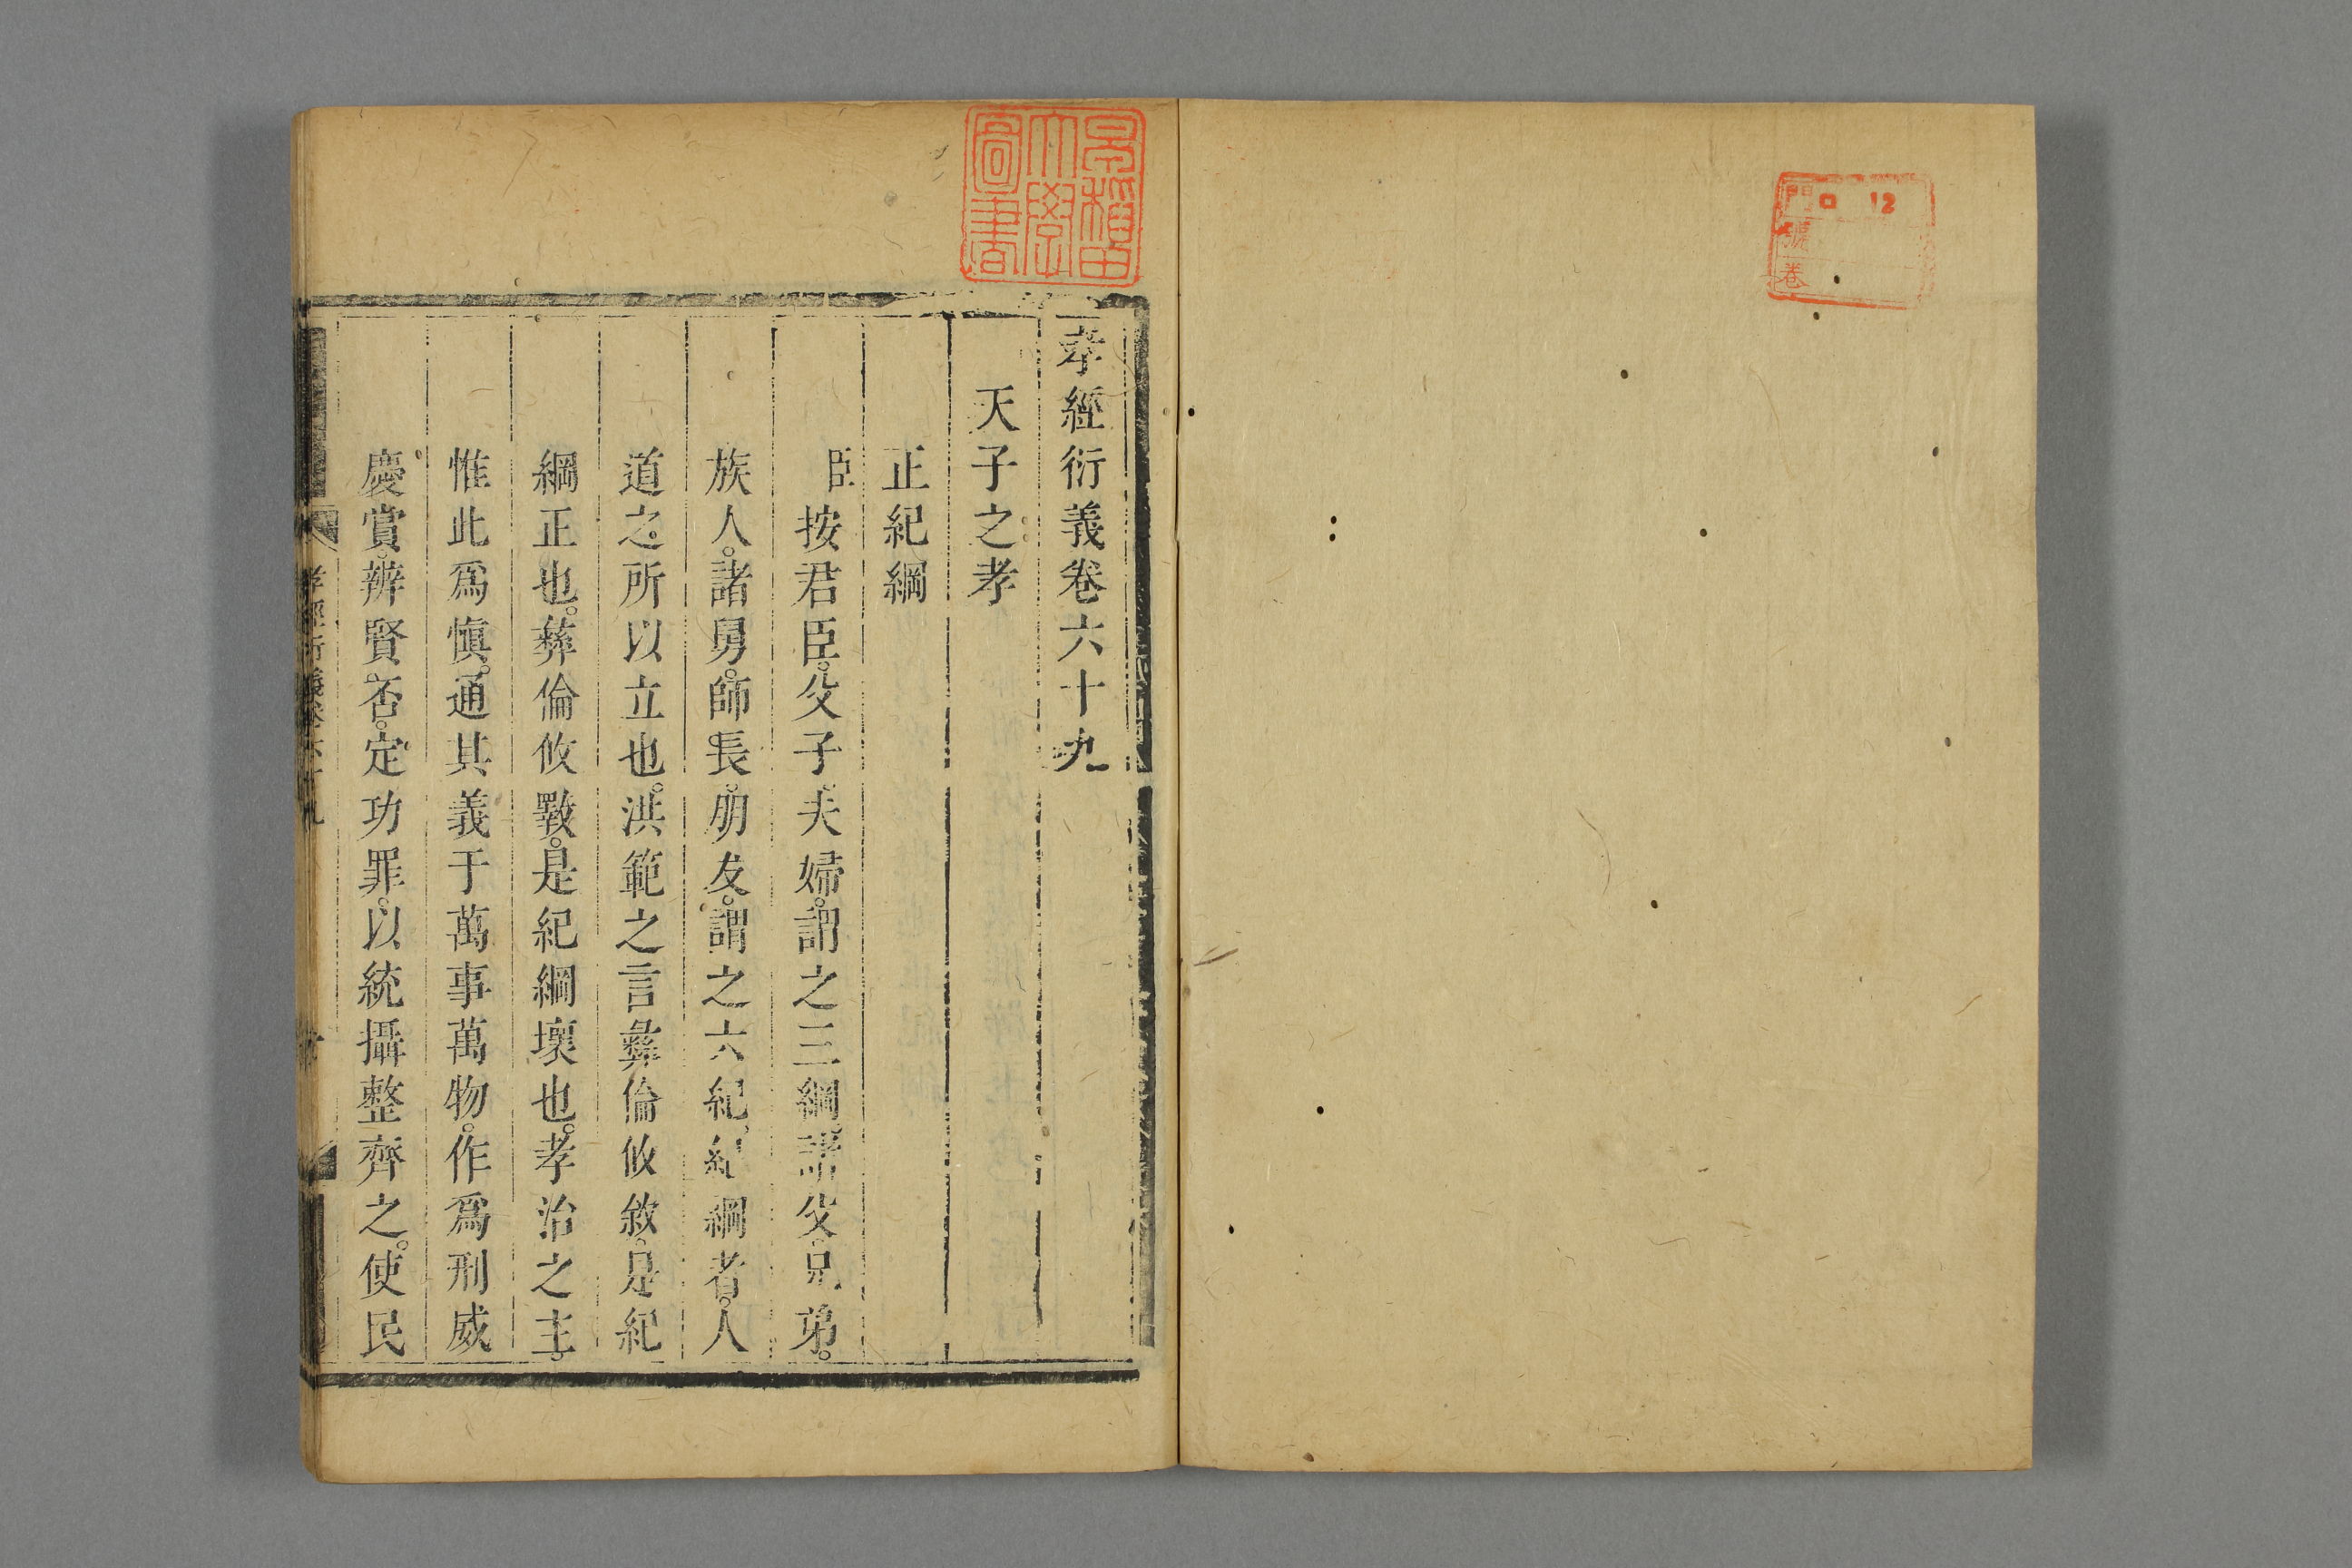 門 ロ 12
號
卷
早稲田
大學
圖書
孝經衍義卷六十九
天子之孝
正紀綱
臣按君臣。父子。夫婦。謂之三綱。諸父。兄弟。
族人。諸舅。師長。朋友。謂之六紀。紀綱者。人
道之所以立也。洪範之言彝倫攸敘。是紀
綱正也。彝倫攸斁。是紀綱壞也。孝治之主。
惟此爲愼。通其義于萬事萬物。作爲刑威
慶賞。辨賢否。定功罪。以統攝整齊之。使民
孝經衍義卷六十九